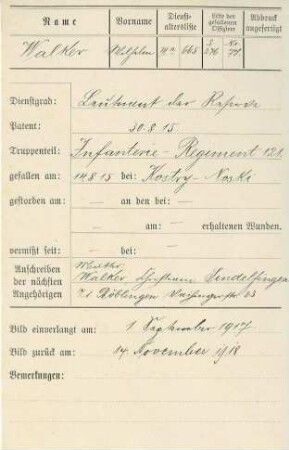 Name Vorname Dienst-altersliste Liste der gefallenen Offiziere Abdruck angefertigt
Walker Wilhelm 665 S. Nr.
Dienstgrad: Leutnant der Reserve
Patent: 30.8.15
Truppenteil: Infanterie-Regiment 121
gefallen am: 14.8.15 bei: Kostry-Noski
gestorben am: — an den bei: —
— am: — erhaltenen Wunden.
vermißt seit: — bei: —
Anschreiben
der nächsten Walker Sindelfingen
Angehörigen Böblingen Vaihingerstr
Bild einverlangt am: 1 September 1917
Bild zurück am: 14. November 1918
Bemerkungen: